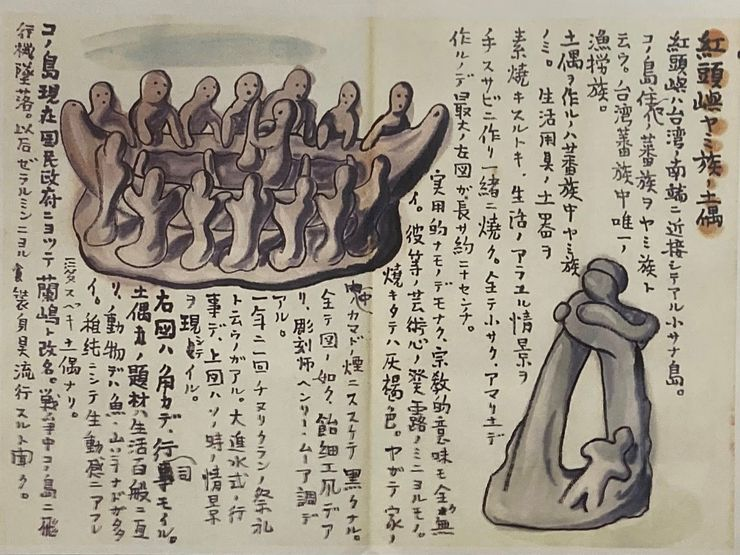 紅頭嶼ヤミ族ノ土偶
紅頭嶼ハ台湾ノ南端ニ近接シテアル小サナ島。
コノ島住ム蕃族ヲヤミ族ト
云ウ。台湾蕃族中唯一ノ
漁撈族。
土偶ヲ作ルハ蕃族中ヤミ族
ノミ。生活用具ノ土器ヲ
素焼キスルトキ、生活ノアラユル情景ヲ
手スサビニ作リ一緒ニ焼ク。全テ小サク、アマリ土デ
作ルノデ最大ノ左図ガ長サ約二十センチ。
実用的ナモノデモナク、宗教的意味モ全然無
イ。彼等ノ芸術心ノ発露ノミニヨルモノ。
焼キタテハ灰褐色。ヤガテ家ノ
中カマドノ煙ニススケテ黒クナル。
全テ図ノ如ク飴細工風デア
リ、彫刻師ヘンリー・ムーア調デ
アル。
一年ニ一回チヌリクランノ祭礼
トユウノガアル。大進水式ノ行
事デ、上図ハソノ時ノ情景
ヲ現シテイル。
右図ハ角力デ、行司モイル。
土偶ノ題材ハ生活百般ニ亘
リ、動物デハ魚、ナドガ多
イ。稚純ニシテ生動感ニアフレ
愛スベキ土偶ナリ。
コノ島現在国民政府ニヨッテ蘭嶼ト改名。戦争中コノ島ニ飛
行機墜落。以后ゼラルミンニヨル装身具流行スルト聞ク。